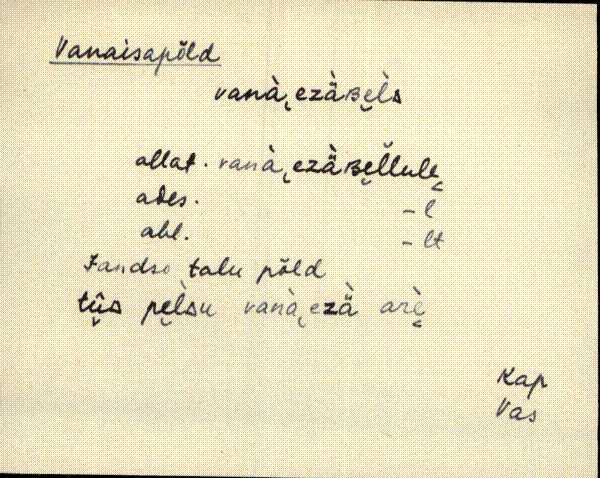 Vanaisapõld
vanà ̮ezäʙe̮l̀s
allat. vanà ̮ezäʙe̮l̆lule̮
ades. – l
abl. – lt
Jandso talu põld
tiî̮s pe̮l̀su vanà ̮ezä̀ arè̮
Kap
Vas